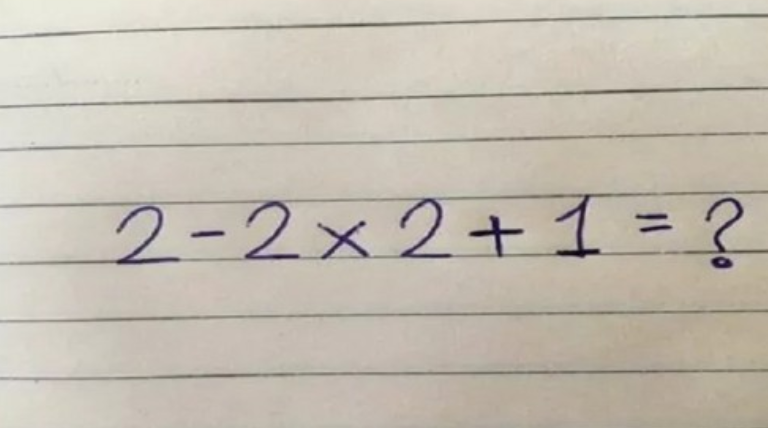 2-2×2+1=?